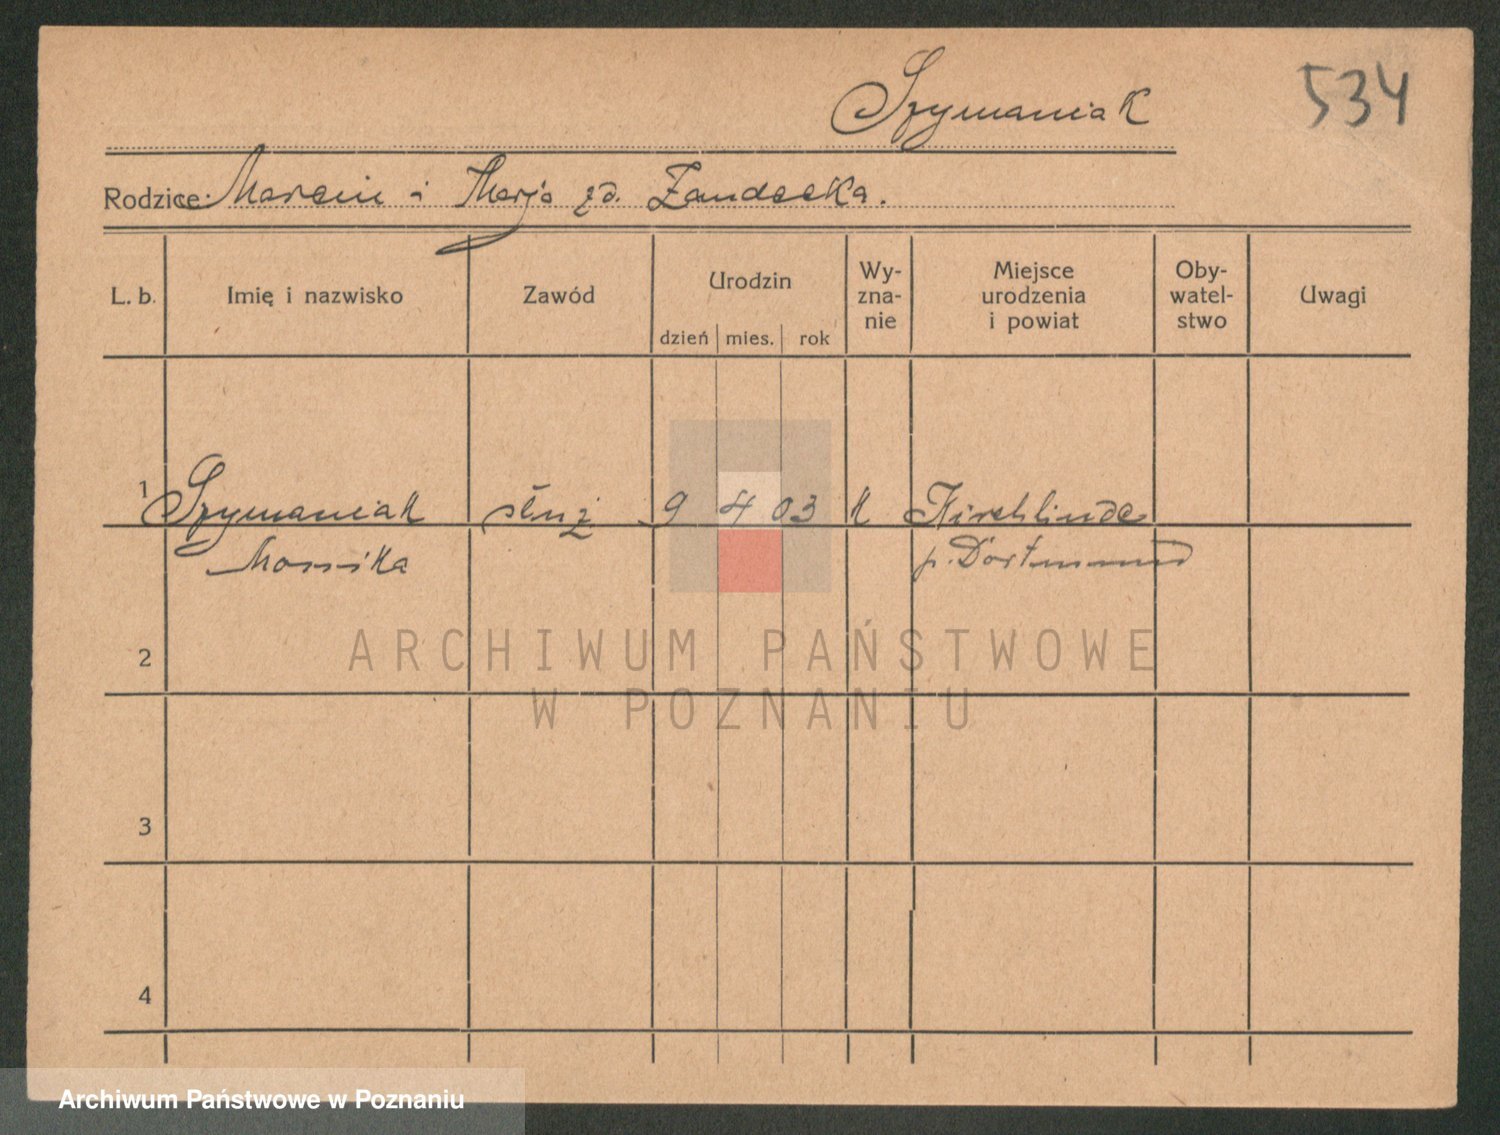 Szymaniak
534
Rodzice: Marcin i Marja zd.
L. b.
Imię i nazwisko
Zawód
Urodzin
dzień mies. rok
Wy-
zna-
nie
Miejsce
urodzenia
i powiat
Oby-
watel-
stwo
Uwagi
1 Szymaniak służ 9 4 03 k Kirchlinde
Monika p. Dortmund
2
3
4
ARCHIWUM PAŃSTWOWE
W POZNANIU
Archiwum Państwowe w Poznaniu